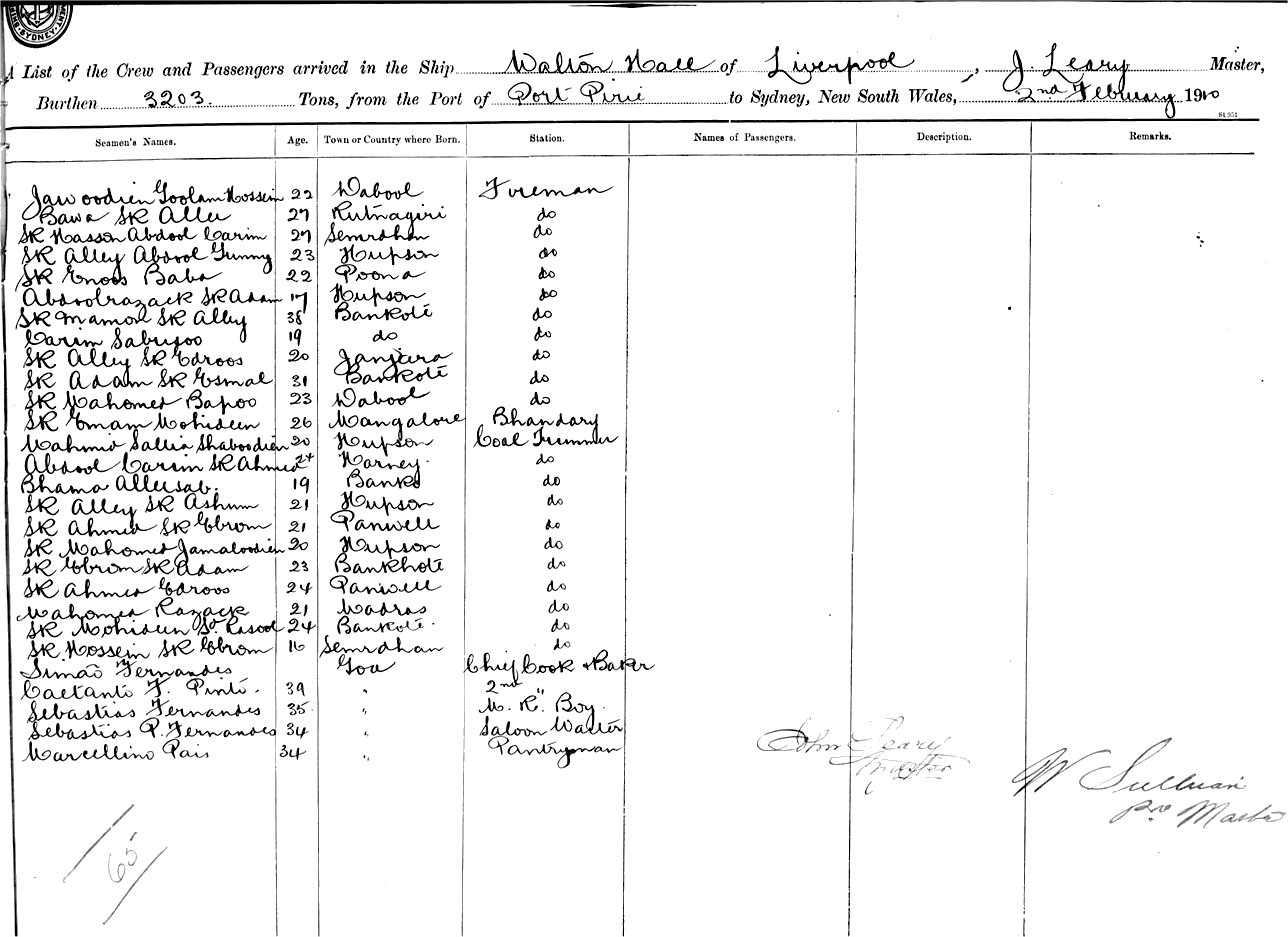 SYDNEY
A List of the Crew and Passengers arrived in the Ship Walton Hall of Liverpool, J. Leary Master,
Burthen 3203. Tons, from the Port of Port Pirie to Sydney, New South Wales, 2nd February 1910
St 951
Seamen's Names. Age. Town or Country where Born. Station. Names of Passengers. Description. Remarks.
Jawoodien Goolam Hossein 22 Dabool Fireman
Bawa SK Allee 27 Rutnagiri do
SK Hasson Abdool Carim 27 Semrdhan do
SK Alley Abdool Gunny 23 Hupson do
SK Enoos Baba 22 Poona do
Abdoolrazack SK Adam 17 Hupson do
SK Mamod SK Alley 38 Bankote do
Carim Sabujoo 19 do do
SK Alley SK Edroos 20 Janjira do
SK Adam SK Esmal 31 Bankote do
SK Mahomed Bapoo 23 Dabool do
SK Emam Mohideen 26 Mangalore Bhandary
Mahmid Sallia Shaboodien 20 Hupson Coal Trimmer
Abdool Carim SK Ahmed 24 Harney. do
Bhama Alleesab. 19 do
SK Alley SK Ashum 21 Hupson do
SK Ahmed SK Ebrom 21 Panwell do
SK Mahomed Jamaloodien 20 Hupson do
SK Ebrom SK Adam 23 Bankhote do
SK Ahmed Edroos 24 Panwell do
Mahomed Razack 21 Madras do
SK Mohideen Rasool 24 Bankote. do
SK Hossein SK Ebrom 16 Semrdhan do
Simao Fernandes Goa Chief Cook & Baker
Caetanto F. Pinto. 39 " 2nd "
Sebastias Fernandes 35 " M. R. Boy.
Sebastias P. Fernandes 34 " Saloon Waiter
Marcellino Pais 34 " Pantryman
John Leary
Master
W Sullivan
pro Master
65